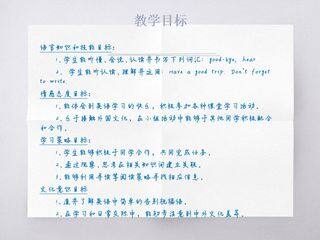 教学目标
语言知识和技能目标:
1、学生能听懂、会说、认读并书写下列词汇: good-bye, hear
2、学生能听认读、理解并运用: Have a good trip. Don't forget
to write.
情感态度目标:
1、能体会到英语学习的快乐，积极参加各种课堂学习活动。
2、乐于接触外国文化，在小组活动中能够于其他同学积极配合
和合作。
学习策略目标:
1、学生能够积极于同学合作，共同完成任务。
2、通过观察、思考在相关知识间建立关联。
3、能够利用寻读等阅读策略寻找相应信息。
文化意识目标
1、逐并了解英语中简单的告别祝福语。
2、在学习和日常交际中，能初步注意到中外文化差异。